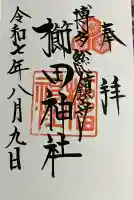 奉拝
博多総鎮守
櫛田神社
令和七年八月九日